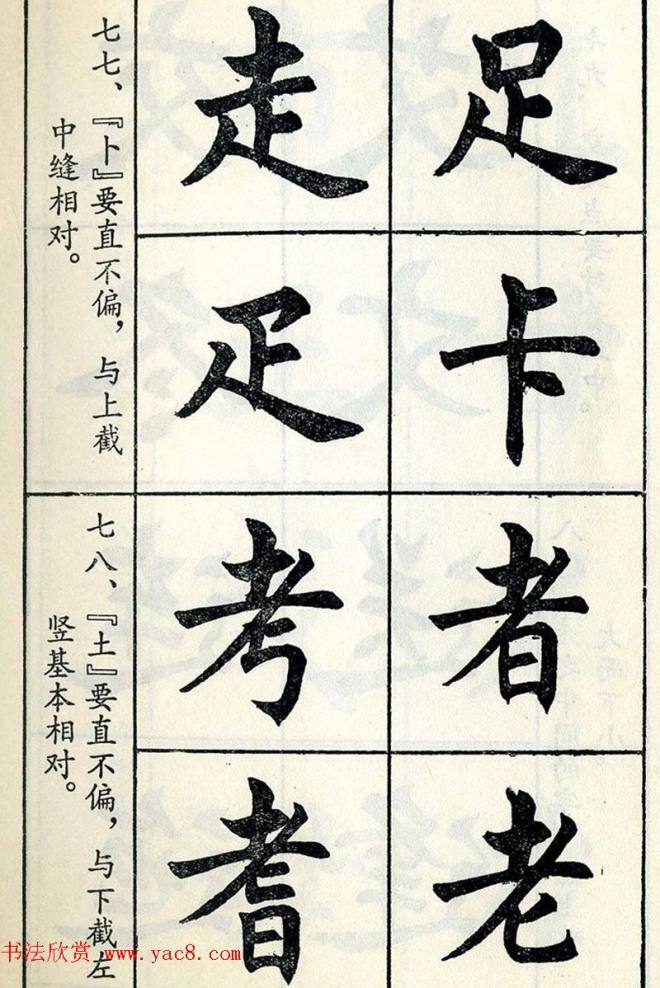 足卡
走疋
七七、『卜』要直不偏，与上截
中缝相对。
者老
考耆
七八、『土』要直不偏，与下截左
竖基本相对。
书法欣赏 www.yac8.com